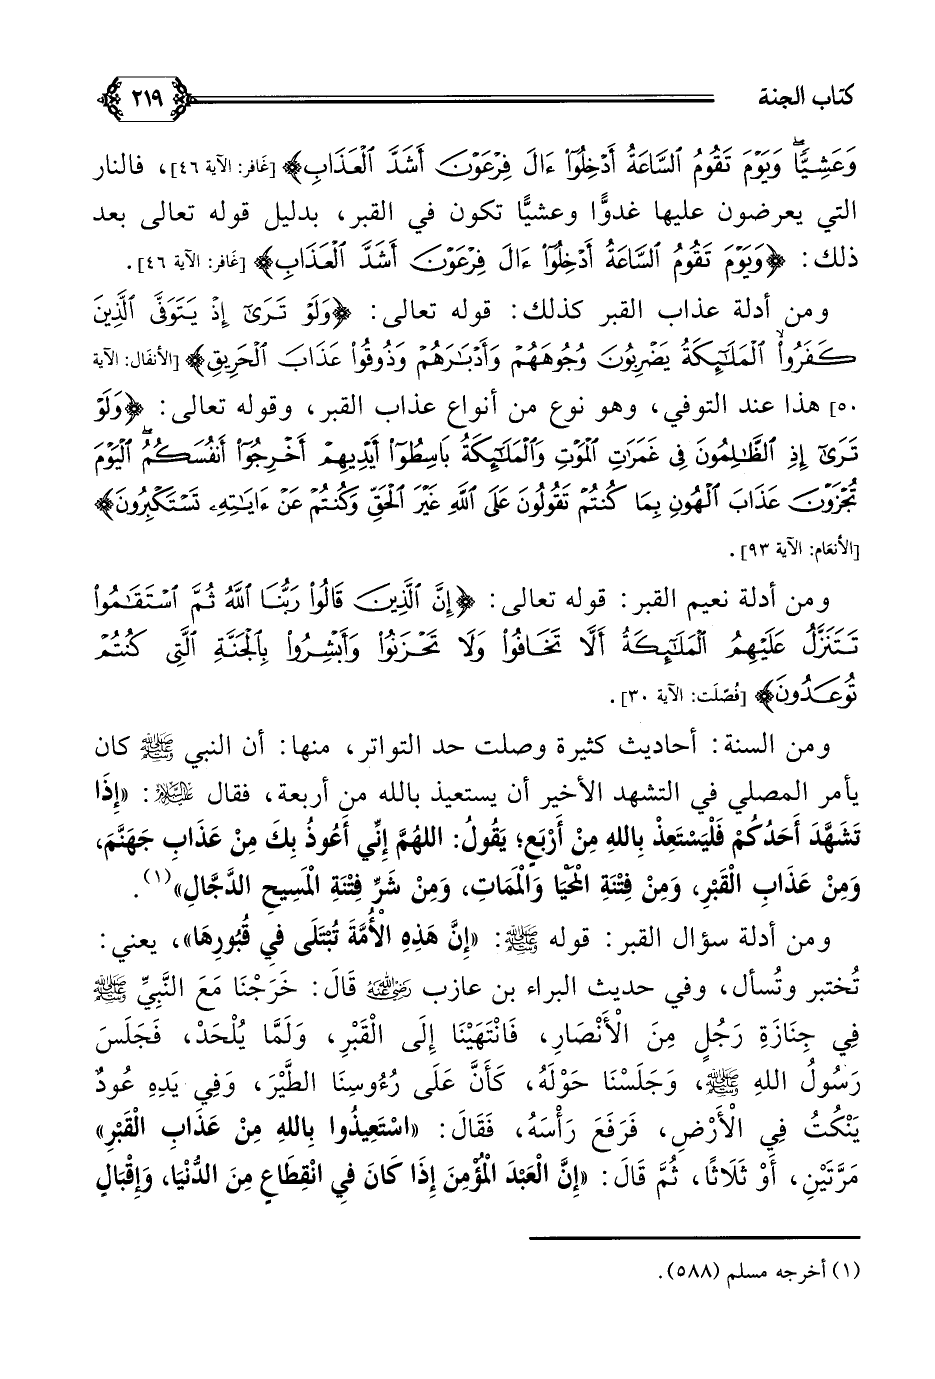 كتاب الجنة ٢١٩
وَعَشِيًّا وَيَوْمَ تَقُومُ السَّاعَةُ أَدْخِلُوٓا۟ ءَالَ فِرْعَوْنَ أَشَدَّ الْعَذَابِ﴾ [غَافر: الآية ٤٦]، فالنار
التي يعرضون عليها غدوًّا وعشيًّا تكون في القبر، بدليل قوله تعالى بعد
ذلك: ﴿وَيَوْمَ تَقُومُ السَّاعَةُ أَدْخِلُوٓا۟ ءَالَ فِرْعَوْنَ أَشَدَّ الْعَذَابِ﴾ [غَافر: الآية ٤٦].
ومن أدلة عذاب القبر كذلك: قوله تعالى: ﴿وَلَوْ تَرَىٰٓ إِذْ يَتَوَفَّى الَّذِينَ
كَفَرُوا۟ۙ الْمَلَـٰٓئِكَةُ يَضْرِبُونَ وُجُوهَهُمْ وَأَدْبَـٰرَهُمْ وَذُوقُوا۟ عَذَابَ الْحَرِيقِ﴾ [الأنفَال: الآية
٥٠] هذا عند التوفي، وهو نوع من أنواع عذاب القبر، وقوله تعالى: ﴿وَلَوْ
تَرَىٰٓ إِذِ الظَّـٰلِمُونَ فِى غَمَرَٰتِ الْمَوْتِ وَالْمَلَـٰٓئِكَةُ بَاسِطُوٓا۟ أَيْدِيهِمْ أَخْرِجُوٓا۟ أَنفُسَكُمُۖ الْيَوْمَ
تُجْزَوْنَ عَذَابَ الْهُونِ بِمَا كُنتُمْ تَقُولُونَ عَلَى اللَّهِ غَيْرَ الْحَقِّ وَكُنتُمْ عَنْ ءَايَـٰتِهِۦ تَسْتَكْبِرُونَ﴾
[الأنعَام: الآية ٩٣].
ومن أدلة نعيم القبر: قوله تعالى: ﴿إِنَّ الَّذِينَ قَالُوا۟ رَبُّنَا اللَّهُ ثُمَّ اسْتَقَـٰمُوا۟
تَتَنَزَّلُ عَلَيْهِمُ الْمَلَـٰٓئِكَةُ أَلَّا تَخَافُوا۟ وَلَا تَحْزَنُوا۟ وَأَبْشِرُوا۟ بِالْجَنَّةِ الَّتِى كُنتُمْ
تُوعَدُونَ﴾ [فُصّلَت: الآية ٣٠].
ومن السنة: أحاديث كثيرة وصلت حد التواتر، منها: أن النبي ﷺ كان
يأمر المصلي في التشهد الأخير أن يستعيذ بالله من أربعة، فقال عليه السلام: «إِذَا
تَشَهَّدَ أَحَدُكُمْ فَلْيَسْتَعِذْ بِاللهِ مِنْ أَرْبَعٍ؛ يَقُولُ: اللهُمَّ إِنِّي أَعُوذُ بِكَ مِنْ عَذَابِ جَهَنَّمَ،
وَمِنْ عَذَابِ الْقَبْرِ، وَمِنْ فِتْنَةِ الْمَحْيَا وَالْمَمَاتِ، وَمِنْ شَرِّ فِتْنَةِ الْمَسِيحِ الدَّجَّالِ»(١).
ومن أدلة سؤال القبر: قوله ﷺ: «إِنَّ هَذِهِ الْأُمَّةَ تُبْتَلَى فِي قُبُورِهَا»، يعني:
تُختبر وتُسأل، وفي حديث البراء بن عازب رضي الله عنه قَالَ: خَرَجْنَا مَعَ النَّبِيِّ ﷺ
فِي جِنَازَةِ رَجُلٍ مِنَ الْأَنْصَارِ، فَانْتَهَيْنَا إِلَى الْقَبْرِ، وَلَمَّا يُلْحَدْ، فَجَلَسَ
رَسُولُ اللهِ ﷺ، وَجَلَسْنَا حَوْلَهُ، كَأَنَّ عَلَى رُءُوسِنَا الطَّيْرَ، وَفِي يَدِهِ عُودٌ
يَنْكُتُ فِي الْأَرْضِ، فَرَفَعَ رَأْسَهُ، فَقَالَ: «اسْتَعِيذُوا بِاللهِ مِنْ عَذَابِ الْقَبْرِ»
مَرَّتَيْنِ، أَوْ ثَلَاثًا، ثُمَّ قَالَ: «إِنَّ الْعَبْدَ الْمُؤْمِنَ إِذَا كَانَ فِي انْقِطَاعٍ مِنَ الدُّنْيَا، وَإِقْبَالٍ
(١) أخرجه مسلم (٥٨٨).